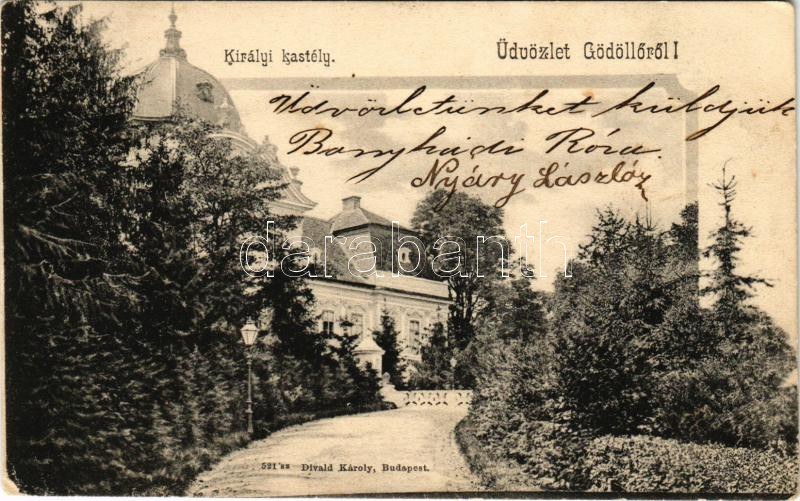 Királyi kastély.
Üdvözlet Gödöllőről!
Üdvözletünket küldjük
Banyhádi Róza.
Nyáry László
darabanth.com
521 sz Divald Károly, Budapest.